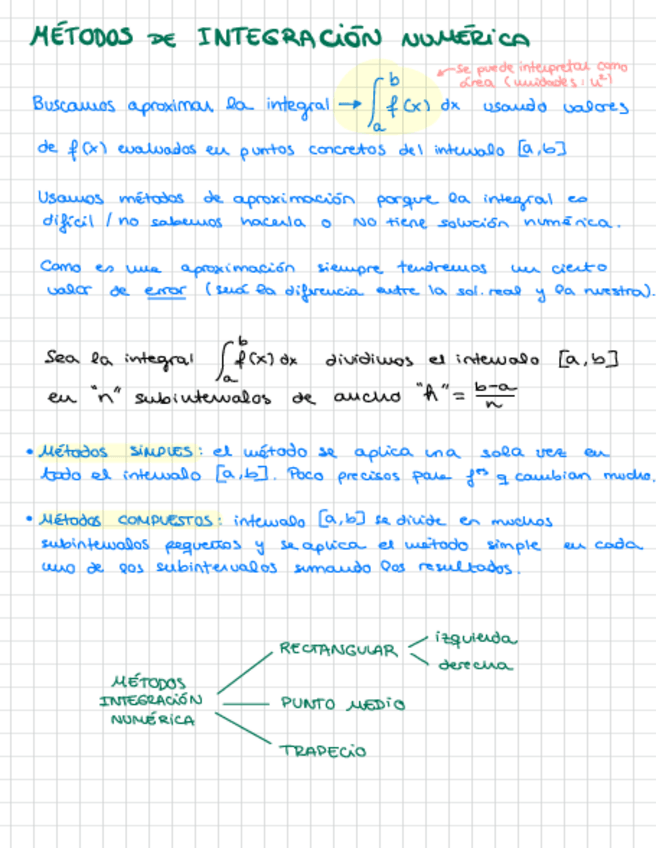 MÉTODOS DE INTEGRACIÓN NUMÉRICA
se puede interpretar como
área (unidades: u²)
Buscamos aproximar la integral → ∫_a^b f(x) dx usando valores
de f(x) evaluados en puntos concretos del intervalo [a,b]
Usamos métodos de aproximación porque la integral es
difícil / no sabemos hacerla o NO tiene solución numérica.
Como es una aproximación siempre tendremos un cierto
valor de error (será la diferencia entre la sol. real y la nuestra).
Sea la integral ∫_a^b f(x) dx dividimos el intervalo [a,b]
en "n" subintervalos de ancho "h" = (b-a)/n
• Métodos SIMPLES: el método se aplica una sola vez en
todo el intervalo [a,b]. Poco precisos para fᵒⁿᵉˢ q cambian mucho.
• Métodos COMPUESTOS: intervalo [a,b] se divide en muchos
subintervalos pequeños y se aplica el método simple en cada
uno de los subintervalos sumando los resultados.
MÉTODOS
INTEGRACIÓN
NUMÉRICA
RECTANGULAR
izquierda
derecha
PUNTO MEDIO
TRAPECIO